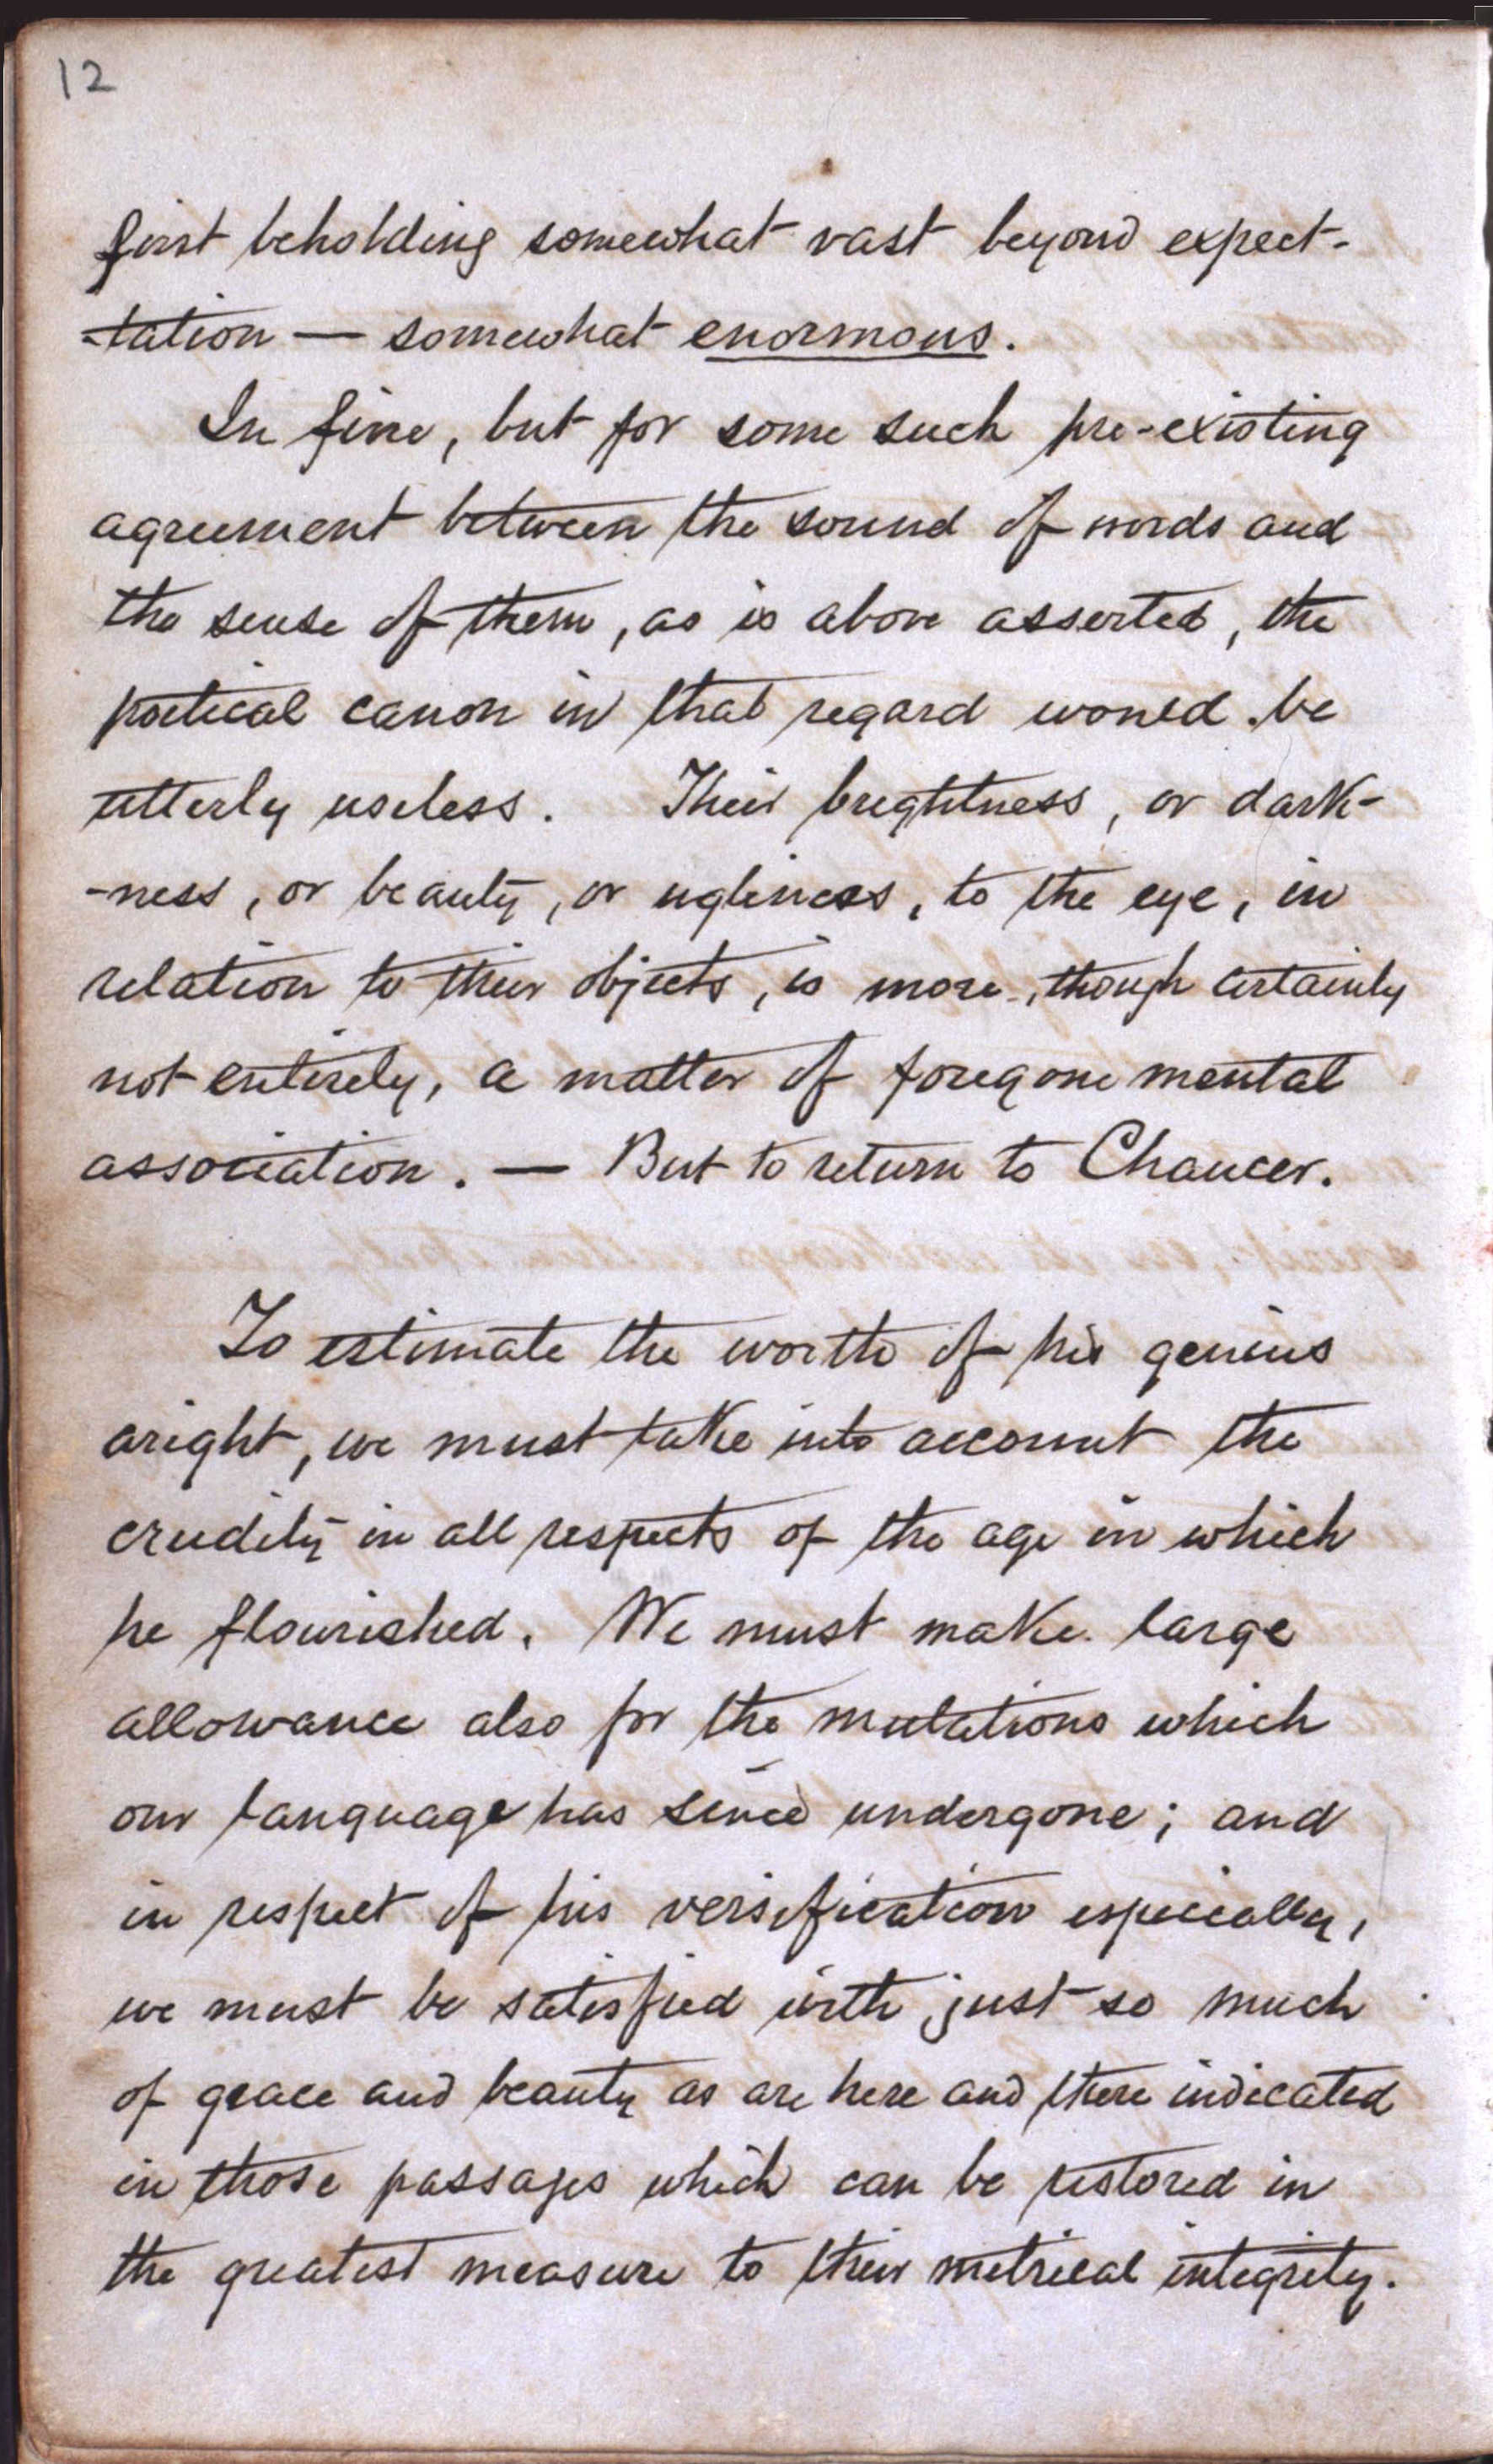 12
first beholding somewhat vast beyond expect-
-tation — somewhat enormous.
In fine, but for some such pre-existing
agreement between the sound of words and
the sense of them, as is above asserted, the
poetical canon in that regard would be
utterly useless. Their brightness, or dark-
-ness, or beauty, or ugliness, to the eye, in
relation to their objects, is more, though certainly
not entirely, a matter of foregone mental
association. — But to return to Chaucer.
To estimate the worth of his genius
aright, we must take into account the
crudity in all respects of the age in which
he flourished. We must make large
allowance also for the mutations which
our language has since undergone; and
in respect of his versification especially,
we must be satisfied with just so much
of grace and beauty as are here and there indicated
in those passages which can be restored in
the greatest measure to their metrical integrity.